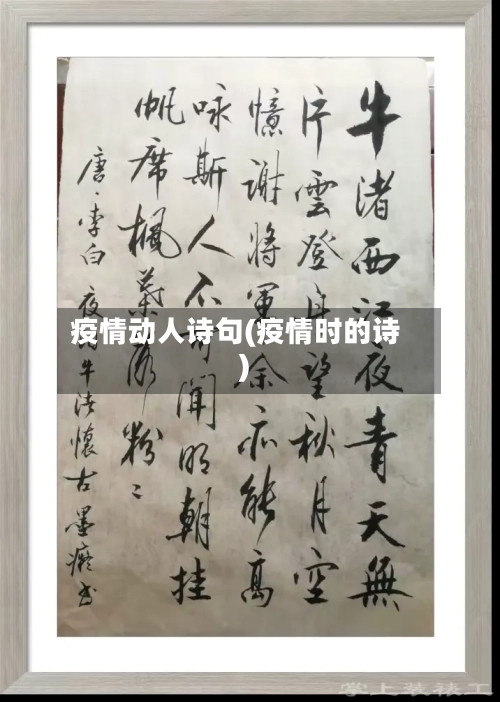 牛渚西江夜青天無
片雲登舟望秋月空
憶謝將軍余亦能高
咏斯人不可聞明朝挂
帆席楓葉落粉〻
唐·李白夜泊牛渚懷古墨癡书
疫情动人诗句(疫情时的诗
)
掌上装裱工